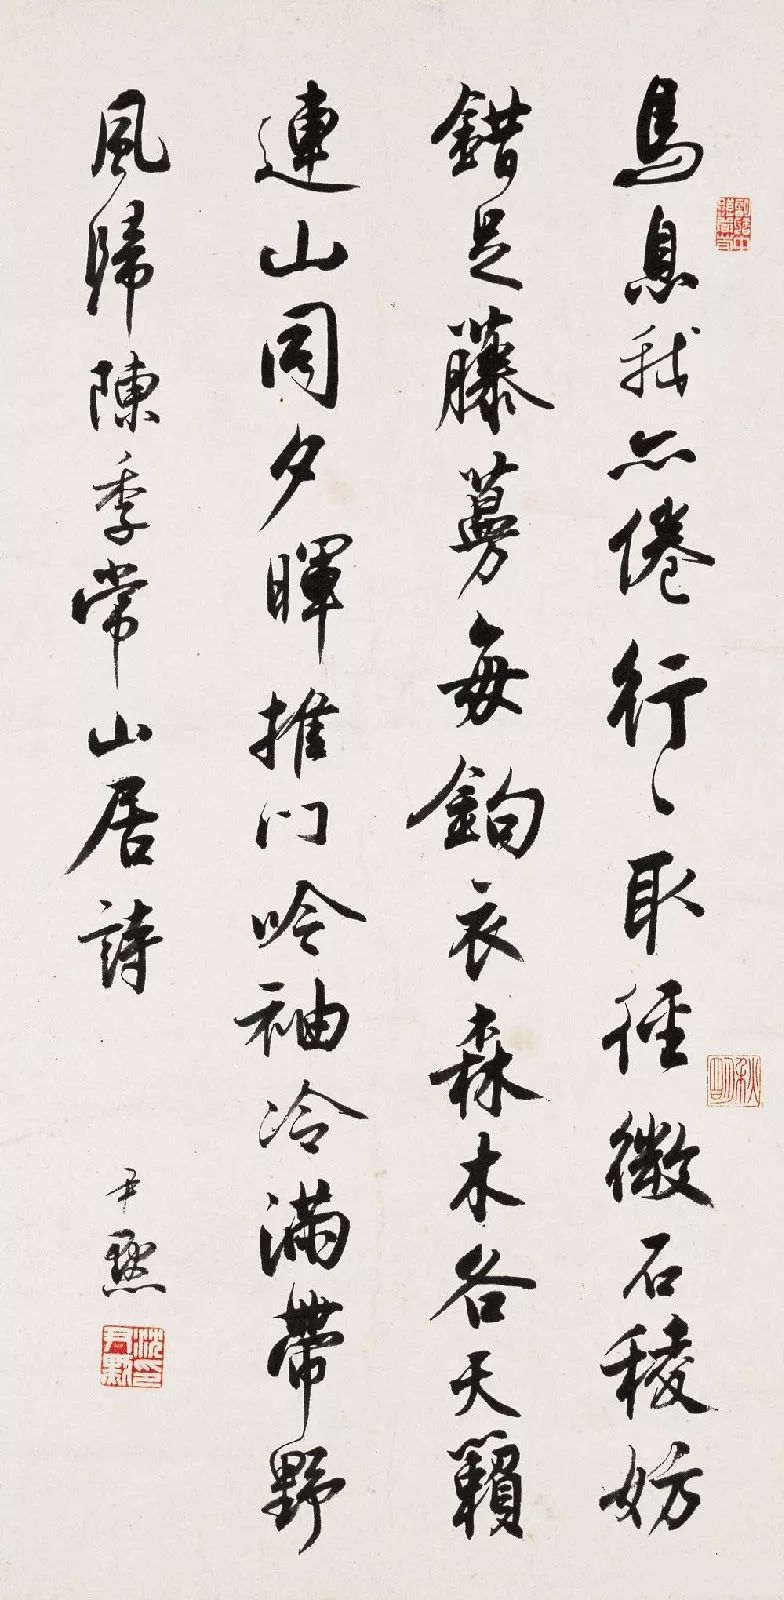 鳥息我亦倦行〻取徑微石稜妨
錯足藤蔓每鉤衣森木各天籟
連山同夕暉推門吟袖冷滿帶野
風歸陳季常山居詩
尹默
沈印尹默
秋明